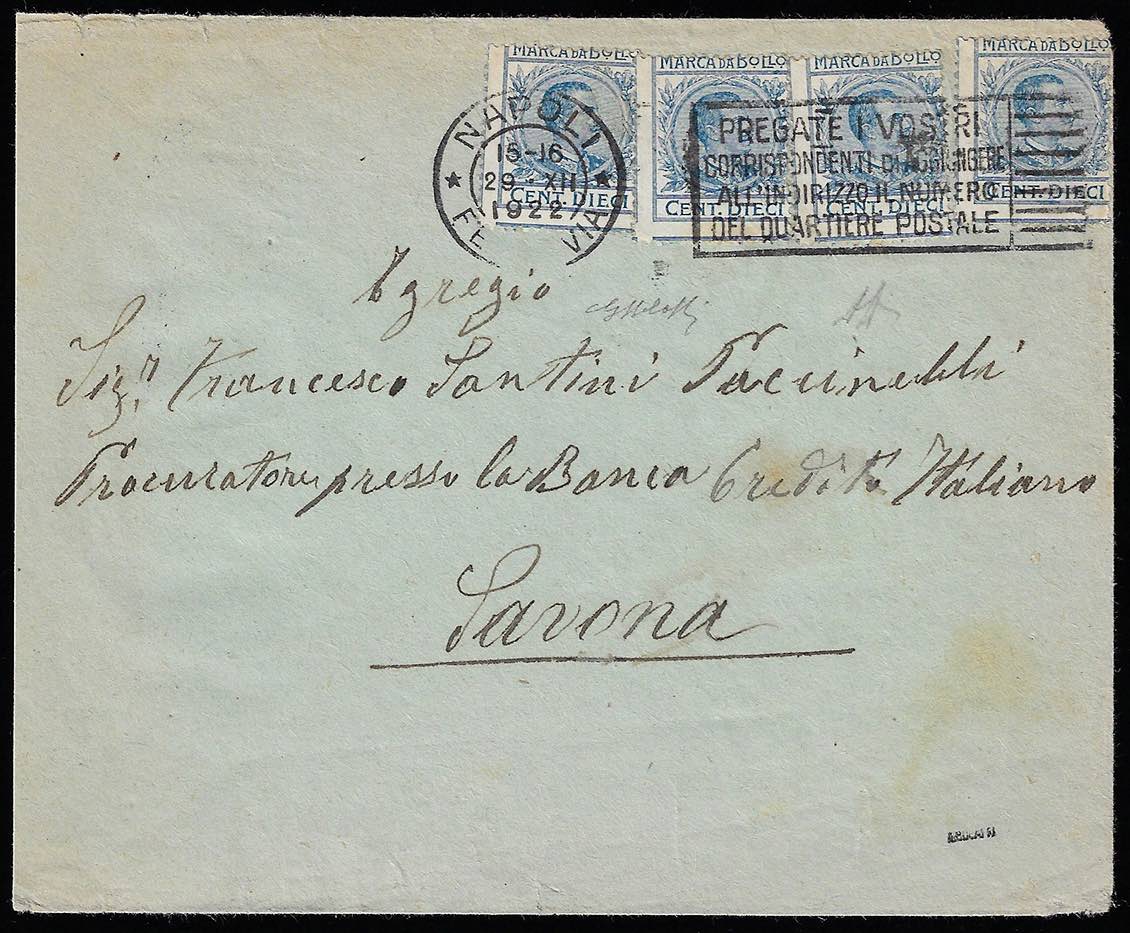 MARCA DA BOLLO MARCA DA BOLLO MARCA DA BOLLO MARCA DA BOLLO
CENT. DIECI CENT. DIECI CENT. DIECI CENT. DIECI
NAPOLI
15-16
29 XII
1922
FE VIA
PREGATE I VOSTRI
CORRISPONDENTI DI AGGIUNGERE
ALL'INDIRIZZO IL NUMERO
DEL QUARTIERE POSTALE
Egregio
Sig.r Francesco Santini Paccinelli
Procuratore presso la Banca Credito Italiano
Savona